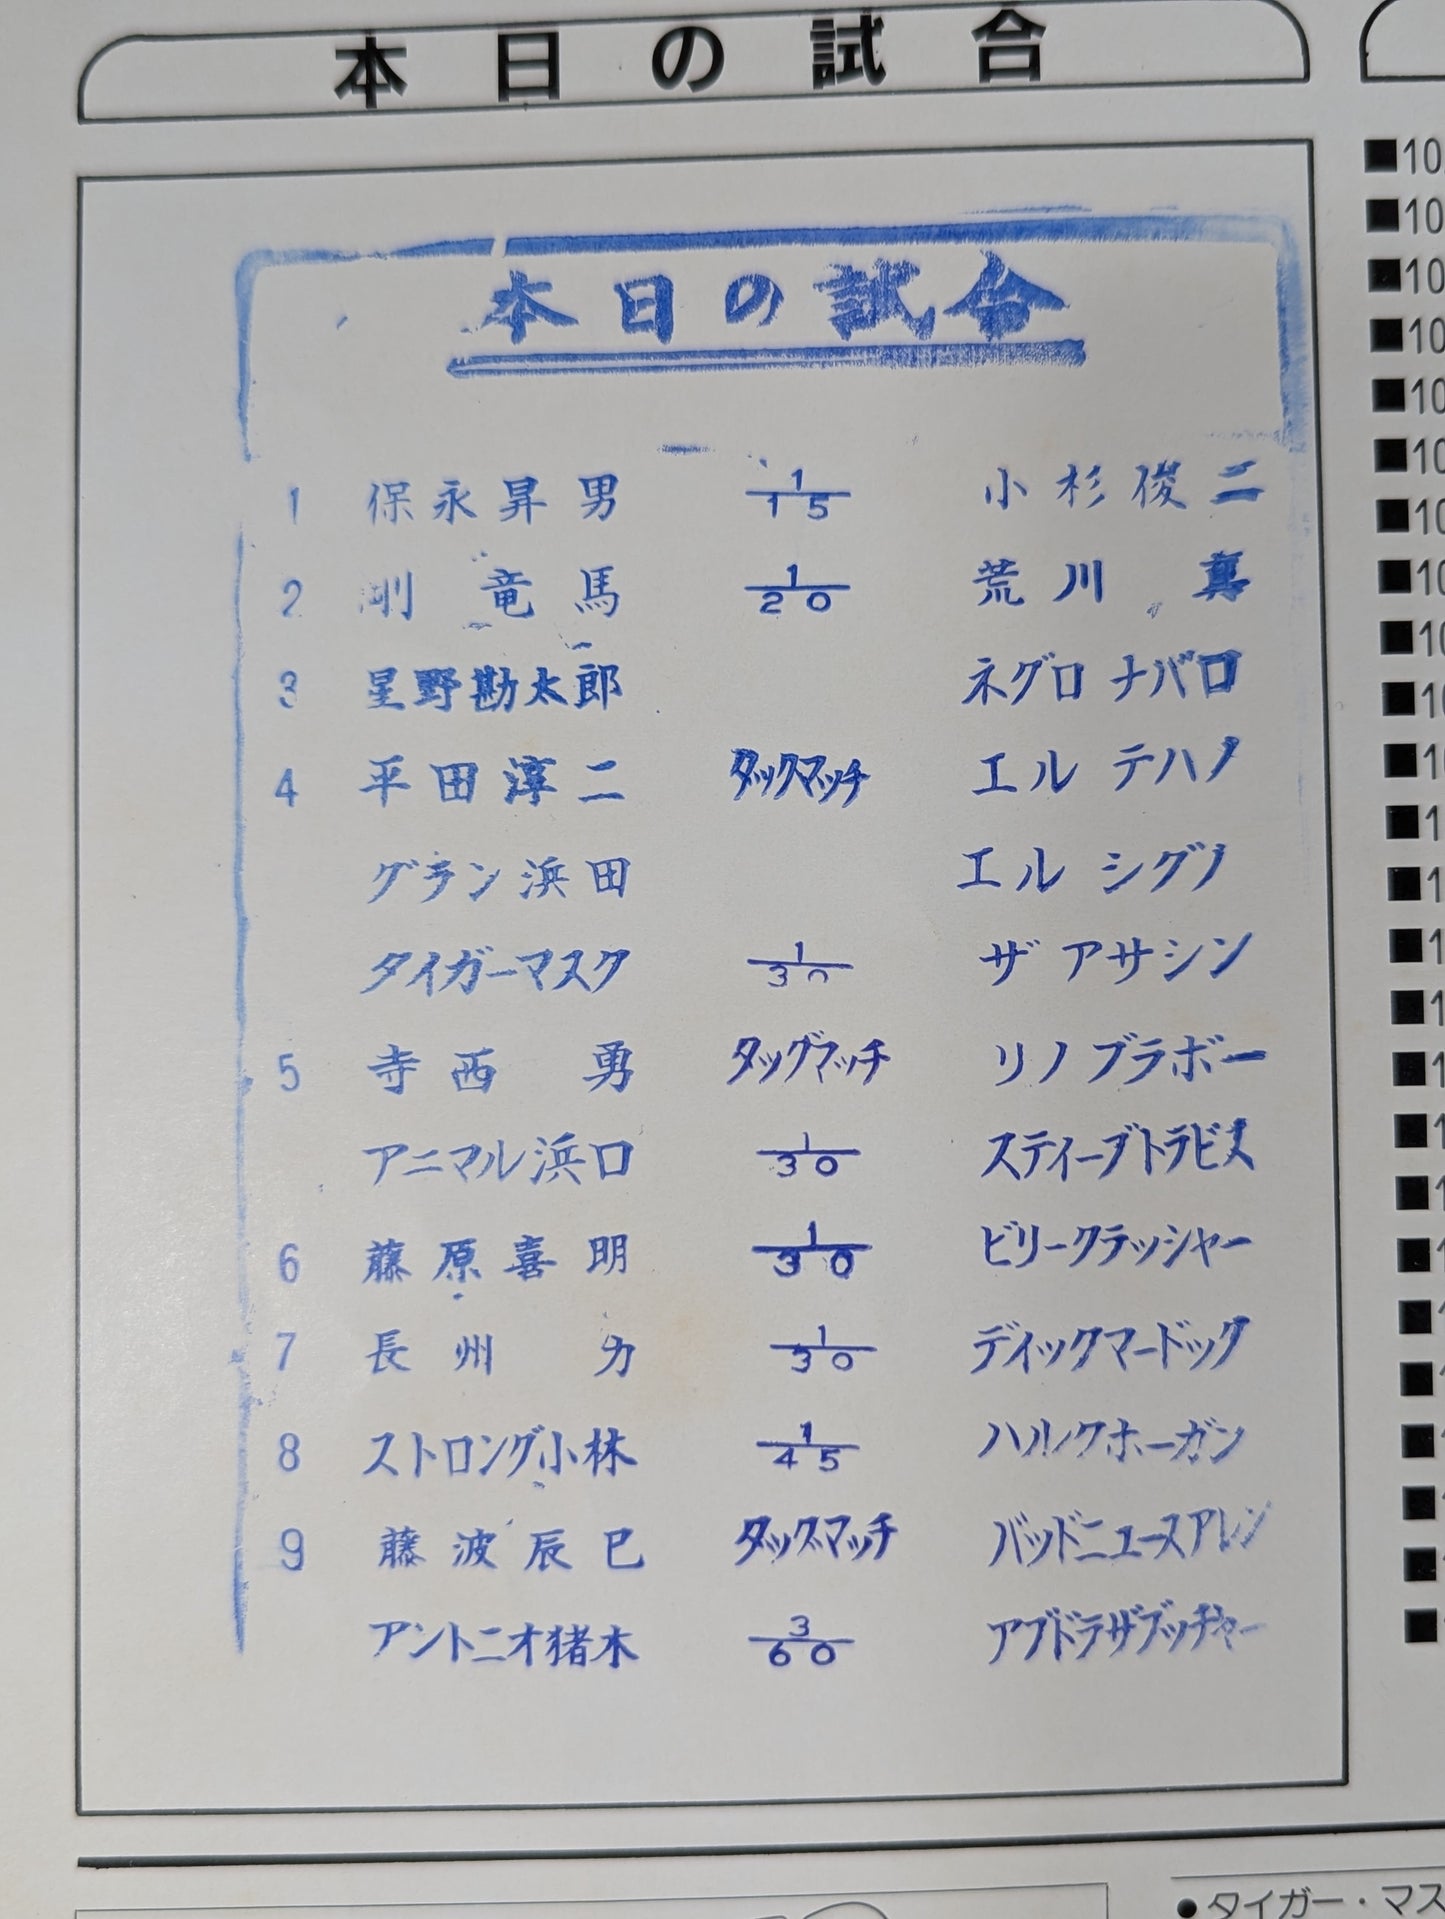 本日の試合
■10
■10
■10
■10
■10
■10
■10
■10
■10
■10
■1
■1
■1
■1
■1
■1
■1
■1
本日の試合
1 保永昇男 1/15 小杉俊二
2 剛竜馬 1/20 荒川真
3 星野勘太郎 ネグロ ナバロ
4 平田淳二 タックマッチ エル テハノ
グラン浜田 エル シグノ
タイガーマスク 1/30 ザ アサシン
5 寺西勇 タッグマッチ リノ ブラボー
アニマル浜口 1/30 スティーブトラビス
6 藤原喜明 1/30 ビリークラッシャー
7 長州力 1/30 ディックマードック
8 ストロング小林 1/45 ハルクホーガン
9 藤波辰巳 タッグマッチ バッドニュースアレン
アントニオ猪木 3/60 アブドラザブッチャー
●タイガー・マス